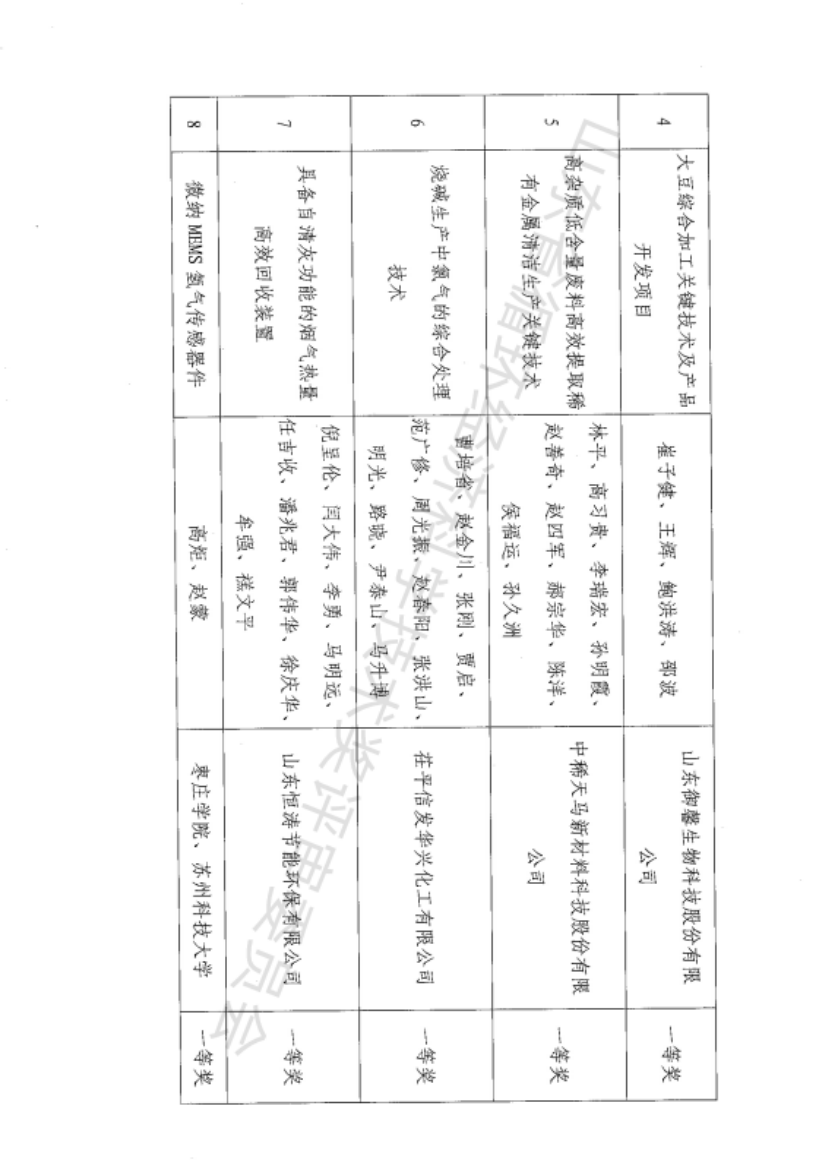 4
大豆综合加工关键技术及产品
开发项目
崔子健、王辉、鲍洪涛、邵波
山东御馨生物科技股份有限
公司
一等奖
5
高杂质低含量废料高效提取稀
有金属清洁生产关键技术
林平、高习贵、李瑞宏、孙明霞、
赵善奇、赵四军、郝宗华、陈洋、
侯福运、孙久洲
中稀天马新材料科技股份有限
公司
一等奖
6
烧碱生产中氯气的综合处理
技术
曹培省、赵金川、张刚、贾启、
范广修、周光振、赵春阳、张洪山、
明光、路晓、尹泰山、马升博
茌平信发华兴化工有限公司
一等奖
7
具备自清灰功能的烟气热量
高效回收装置
倪呈伦、闫大伟、李勇、马明远、
任吉收、潘兆君、郭伟华、徐庆华、
牟强、禚文平
山东恒涛节能环保有限公司
一等奖
8
微纳 MEMS 氢气传感器件
高矩、赵蒙
枣庄学院、苏州科技大学
一等奖
山东省循环经济科学技术奖评审委员会